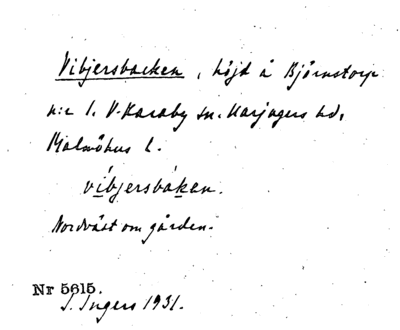 Vibjersbacken, höjd å Björnstorp
n:r 1. V. Karaby sn. Harjagers hd,
Malmöhus l.
víbjersbàken.
Nordväst om gården.
Nr 5615.
I. Ingers 1931.